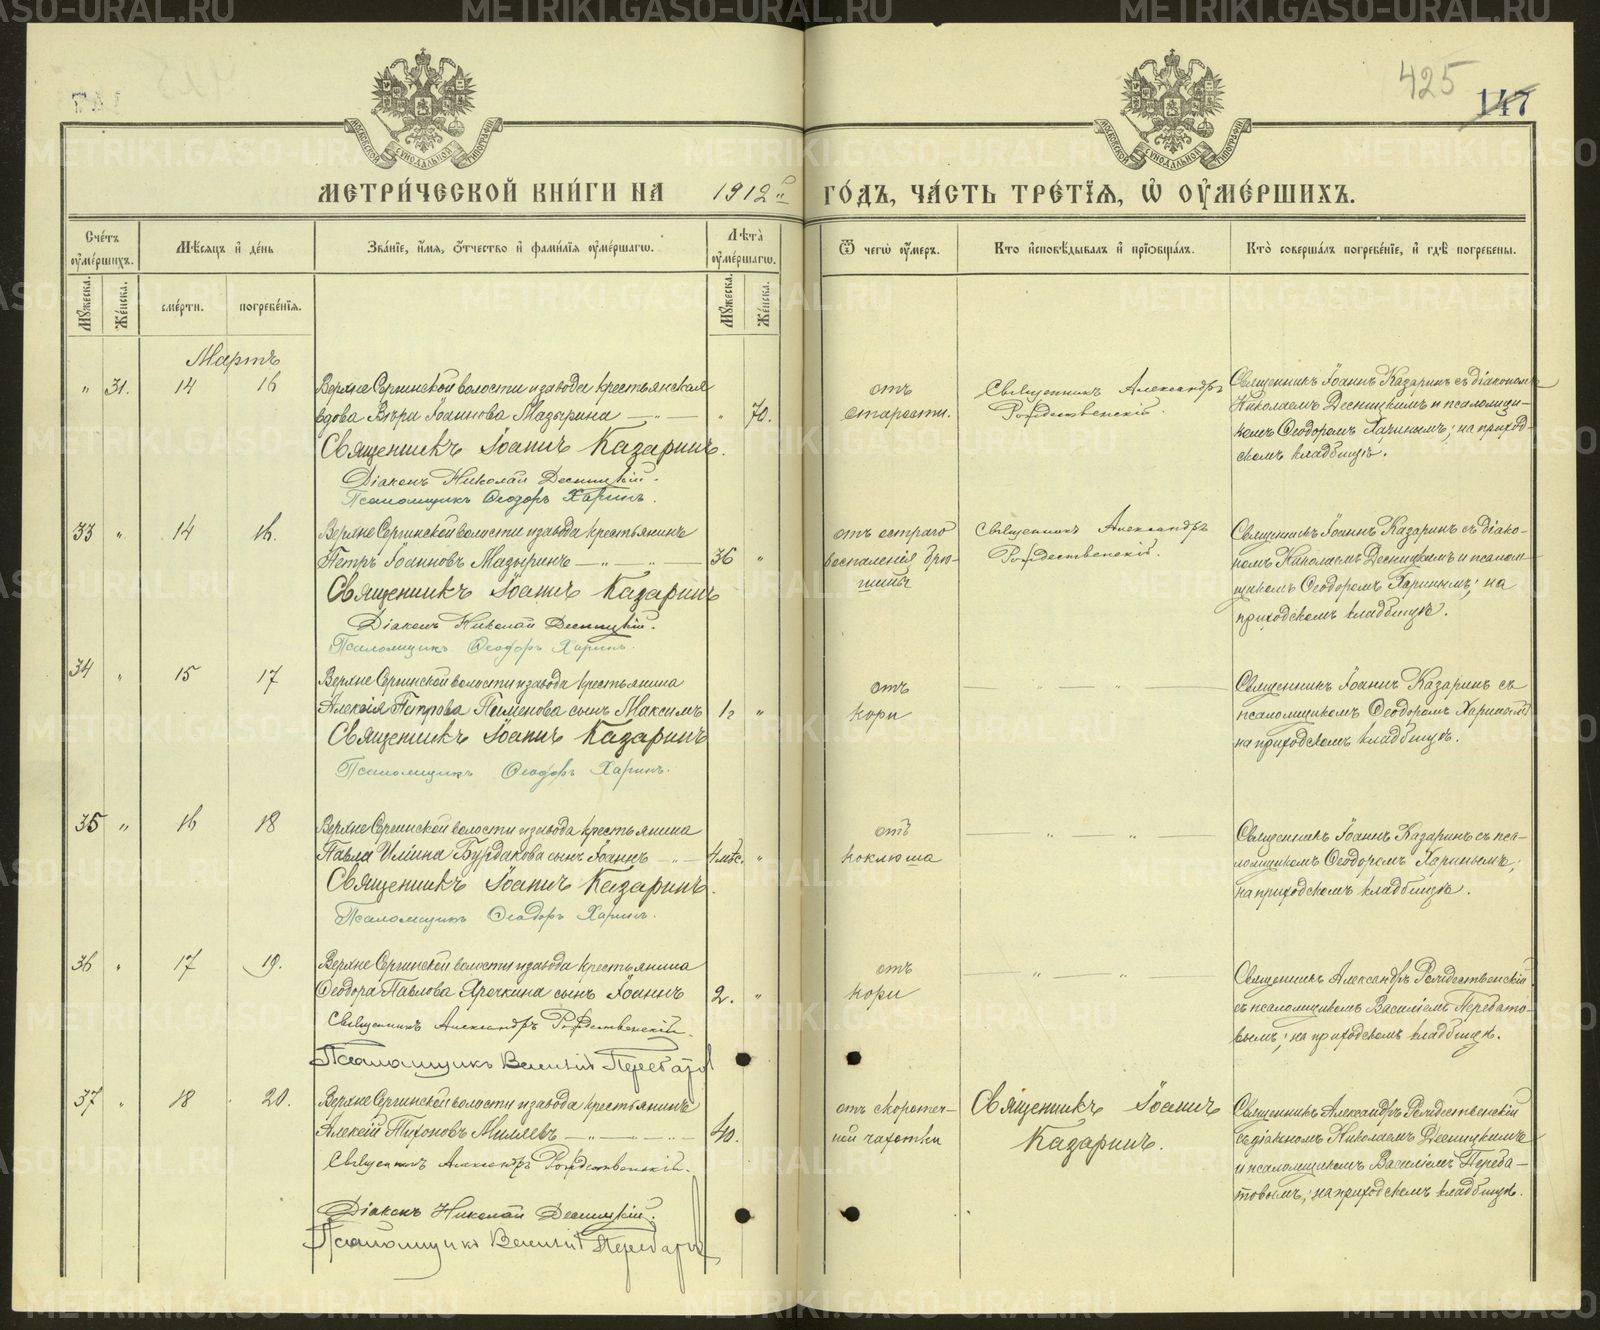 425
147
МЕТРИ́ЧЕСКОЙ КНИ́ГИ НА 1912 ГО́ДЪ, ЧА́СТЬ ТРЕ́ТЇѦ, Ѡ҆ ОУ҆МЕ́РШИХЪ.
Сче́тъ оу҆ме́ршихъ.
Мѣ́сяцъ и҆ де́нь
Зва́нїе, и҆́мѧ, ѻ҆́тчество и҆ фами́лїѧ оу҆ме́ршагѡ.
Лѣ́та оу҆ме́ршагѡ.
Ѿ чегѡ̀ оу҆́меръ.
Кто̀ и҆сповѣ́дывалъ и҆ прїѡбща́лъ.
Кто̀ соверша́лъ погребе́нїе, и҆ гдѣ̀ погребены̀.
Мꙋ́жеска.
Же́нска.
сме́рти.
погребе́нїѧ.
Мꙋ́жеска.
Же́нска.
Мартъ
" 31. 14 16
Верхне Сергинской волости и завода крестьянская
вдова Вѣра Іоаннова Мазырина " 70.
Священникъ Іоаннъ Казаринъ.
Діаконъ Николай Десницкій.
Псаломщикъ Ѳеодоръ Харинъ.
отъ
старости.
Священникъ Александръ
Рождественскій.
Священникъ Іоаннъ Казаринъ съ діакономъ
Николаемъ Десницкимъ и псаломщи-
комъ Ѳеодоромъ Харинымъ; на приход-
скомъ кладбищѣ.
33 " 14 16.
Верхне Сергинской волости и завода крестьянинъ
Петръ Іоанновъ Мазыринъ — " — " — 36 "
Священникъ Іоаннъ Казаринъ
Діаконъ Николай Десницкій.
Псаломщикъ Ѳеодоръ Харинъ.
отъ остраго
воспаленія брю-
шины
Священникъ Александръ
Рождественскій.
Священникъ Іоаннъ Казаринъ съ діако-
номъ Николаемъ Десницкимъ и псалом-
щикомъ Ѳеодоромъ Харинымъ; на
приходскомъ кладбищѣ.
34 " 15 17
Верхне Сергинской волости и завода крестьянина
Алексія Петрова Пименова сынъ Максимъ "
Священникъ Іоаннъ Казаринъ
Псаломщикъ Ѳеодоръ Харинъ.
отъ
кори
— " — " —
Священникъ Іоаннъ Казаринъ съ
псаломщикомъ Ѳеодоромъ Харинымъ
на приходскомъ кладбищѣ.
35 " 16 18
Верхне Сергинской волости и завода крестьянина
Павла Иліина Бурдакова сынъ Іоаннъ — " — 4 мѣс. "
Священникъ Іоаннъ Казаринъ.
Псаломщикъ Ѳеодоръ Харинъ.
отъ
коклюша
" — " —
Священникъ Іоаннъ Казаринъ съ пса-
ломщикомъ Ѳеодоромъ Харинымъ;
на приходскомъ кладбищѣ.
36 " 17 19.
Верхне Сергинской волости и завода крестьянина
Ѳеодора Павлова Яречкина сынъ Іоаннъ 2. "
Священникъ Александръ Рождественскій.
Псаломщикъ Василій
отъ
кори
— " — " —
Священникъ Александръ Рождественскій
съ псаломщикомъ Василіемъ Перебато-
вымъ; на приходскомъ кладбищѣ.
37 " 18 20.
Верхне Сергинской волости и завода крестьянинъ
Алексій Тихоновъ Миляевъ — " — " — 40.
Священникъ Александръ Рождественскій.
Діаконъ Николай Десницкій.
Псаломщикъ Василій
отъ скоротеч-
ной чахотки
Священникъ Іоаннъ
Казаринъ.
Священникъ Александръ Рождественскій
съ діакономъ Николаемъ Десницкимъ
и псаломщикомъ Василіемъ Переба-
товымъ; на приходскомъ кладбищѣ.
METRIKI.GASO-URAL.RU